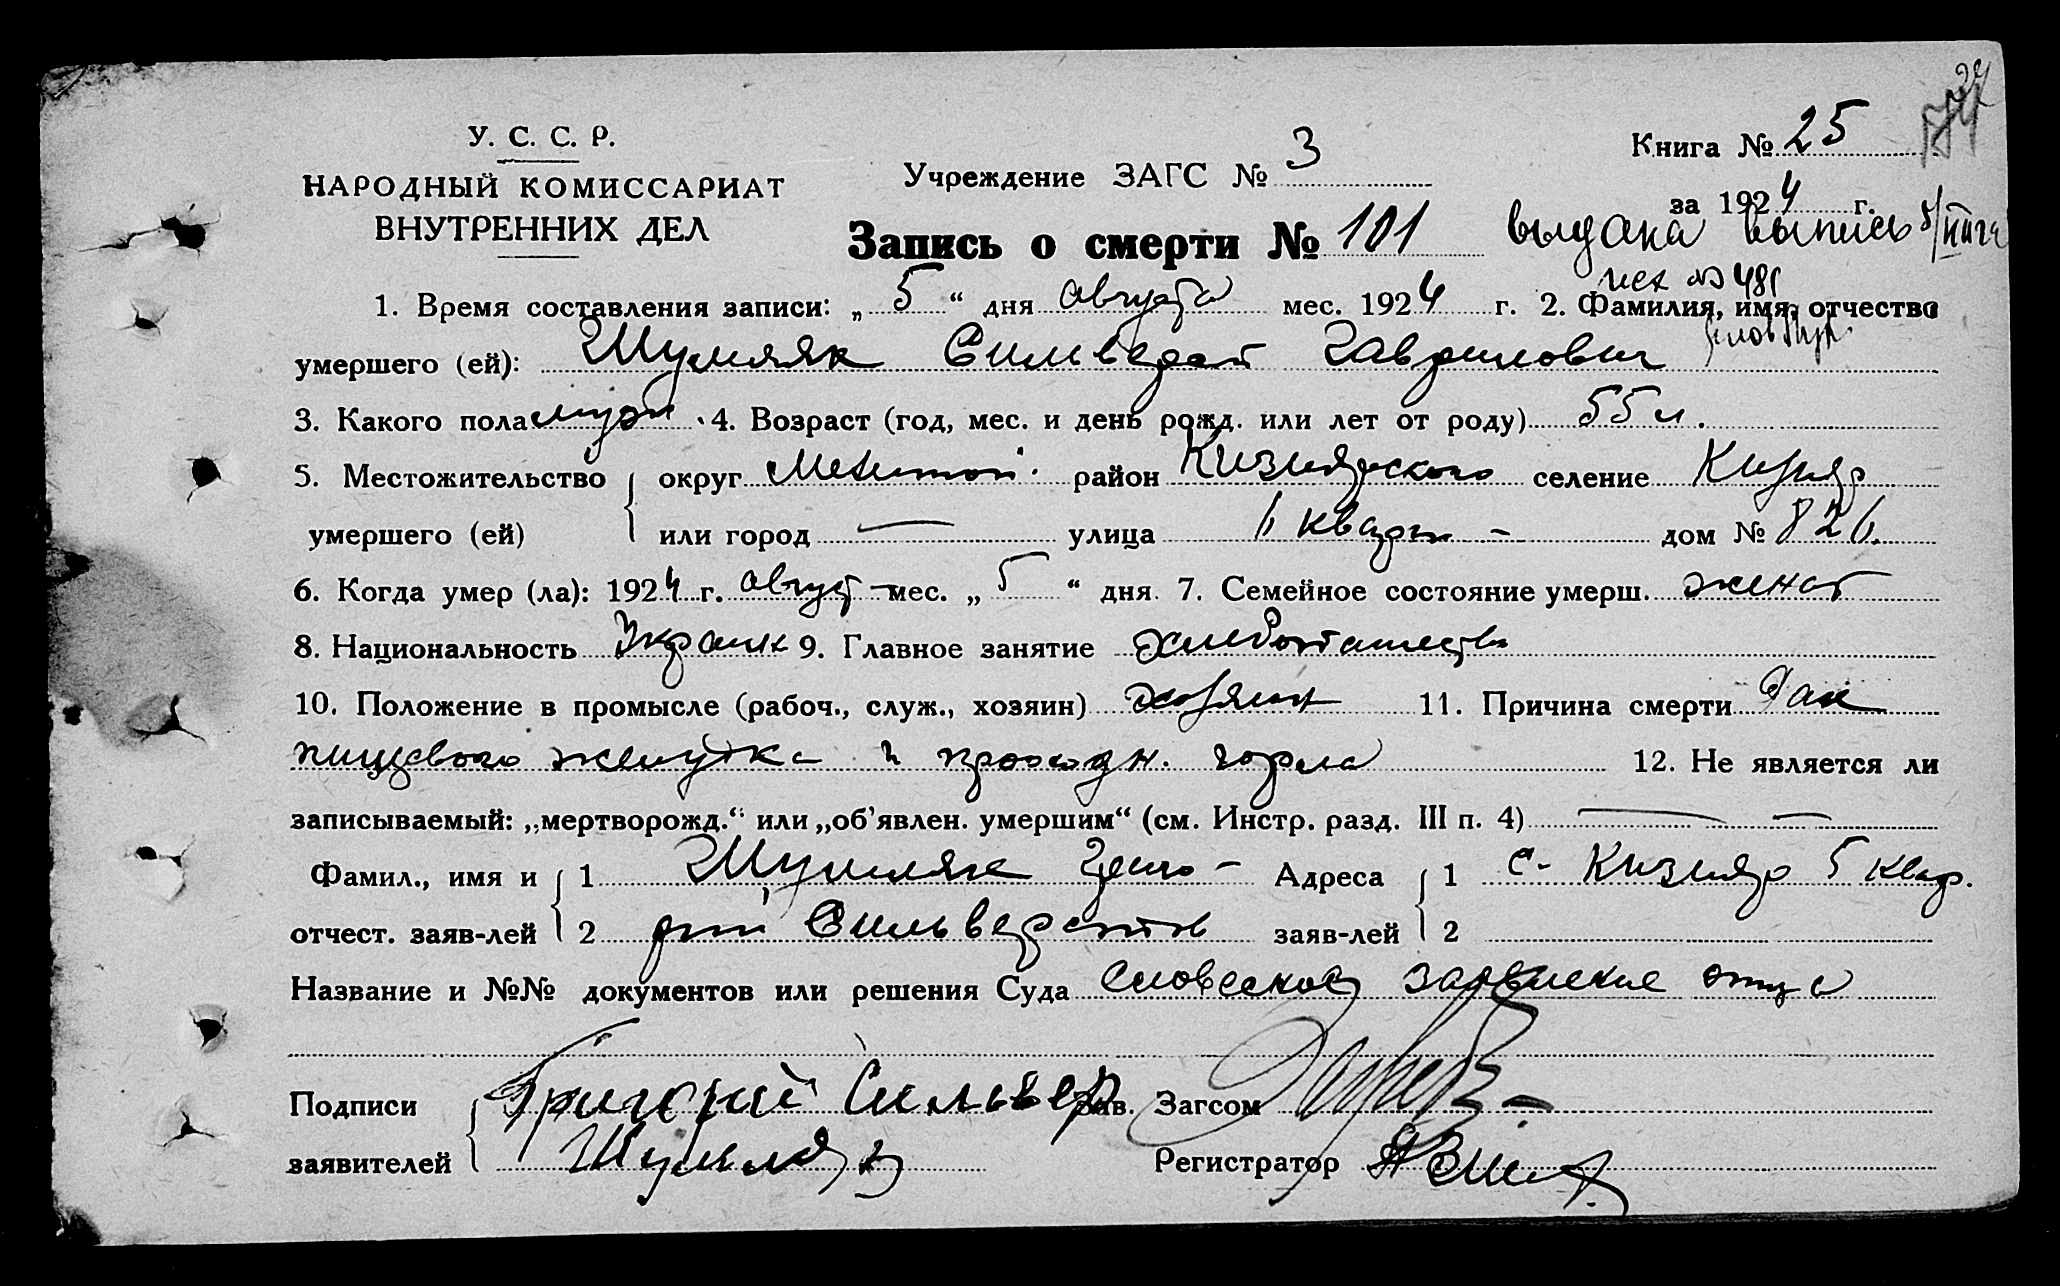 У. С. С. Р.
НАРОДНЫЙ КОМИССАРИАТ
ВНУТРЕННИХ ДЕЛ
Учреждение ЗАГС № 3
Книга № 25
за 1924 г.
Запись о смерти № 101
выдана выпись
исх № 481
1. Время составления записи: „5“ дня августа мес. 1924 г. 2. Фамилия, имя, отчество
умершего (ей): Шумляк Сильверст Гаврилович
3. Какого пола муж. 4. Возраст (год, мес. и день рожд. или лет от роду) 55 л.
5. Местожительство умершего (ей) округ Мелитоп. район Кизиярского селение Кизияр
или город — улица 6 кварт - дом № 826.
6. Когда умер (ла): 1924 г. август мес. „5“ дня. 7. Семейное состояние умерш. женат
8. Национальность Украин 9. Главное занятие хлебопашество
10. Положение в промысле (рабоч., служ., хозяин) хозяин 11. Причина смерти Рак
пищевого желудка и проходн. горла 12. Не является ли
записываемый: „мертворожд.“ или „об’явлен. умершим“ (см. Инстр. разд. III п. 4) — —
Фамил., имя и отчест. заяв-лей 1 Шумляк Григо-
2 рий Сильверстов
Адреса заяв-лей 1 с. Кизияр 5 квар.
2
Название и №№ документов или решения Суда Словесное заявление отца
Подписи заявителей Григорий Сильвер
Шумляк
Зав. Загсом
Регистратор